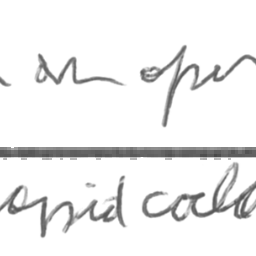 an open
rapid cool